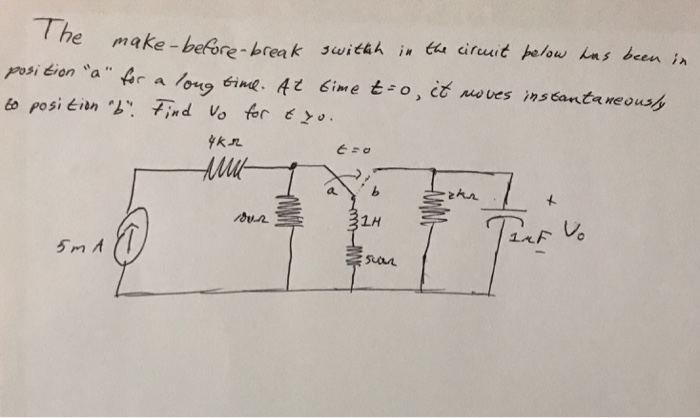 The make-before-break swithh in the circuit below has been in
position "a" for a long time. At time t=0, it moves instantaneously
to position "b". Find Vo for t≥0.
4kΩ
t=0
a
b
2kΩ
+
1H
Vo
5mA